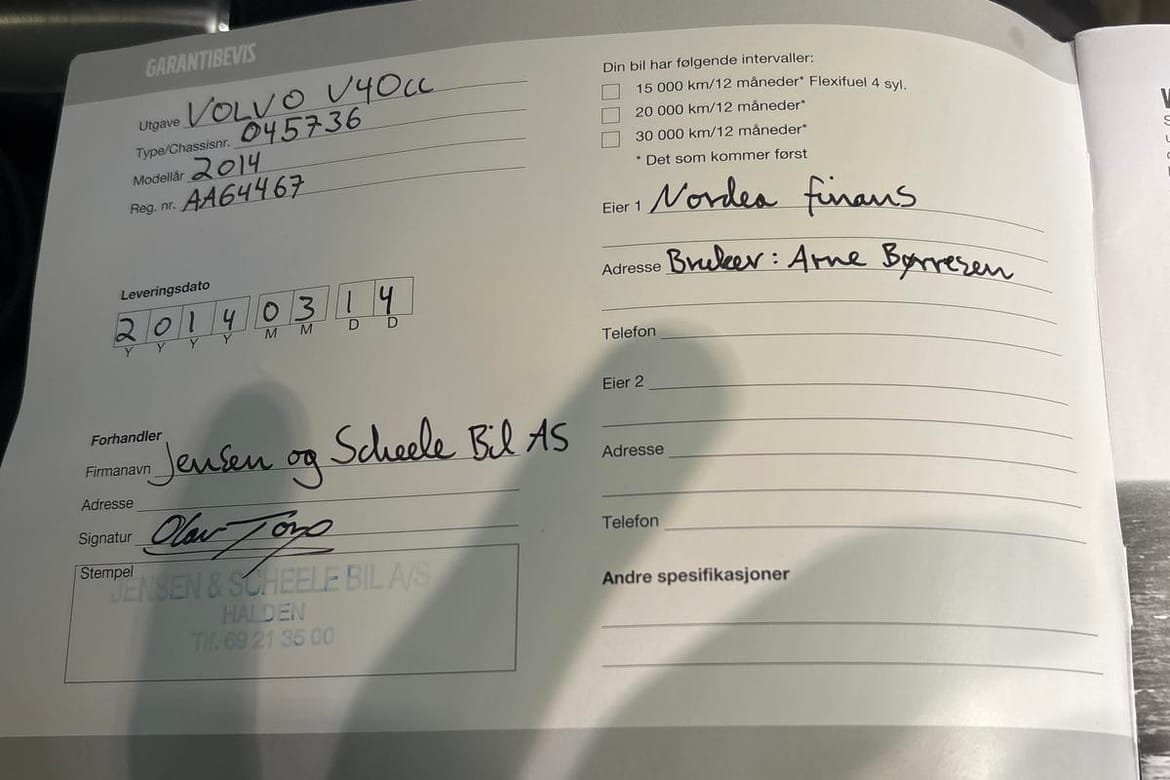 GARANTIBEVIS
Utgave VOLVO V40cc
Type/Chassisnr. 045736
Modellår 2014
Reg. nr. AA64467
Leveringsdato
2 0 1 4 0 3 1 4
Y Y Y Y M M D D
Forhandler
Firmanavn Jensen og Scheele Bil AS
Adresse
Signatur Olav
Stempel
JENSEN & SCHEELE BIL A/S
HALDEN
Tlf. 69 21 35 00
Din bil har følgende intervaller:
15 000 km/12 måneder* Flexifuel 4 syl.
20 000 km/12 måneder*
30 000 km/12 måneder*
* Det som kommer først
Eier 1 Nordea finans
Adresse Bruker: Arne Børresen
Telefon
Eier 2
Adresse
Telefon
Andre spesifikasjoner